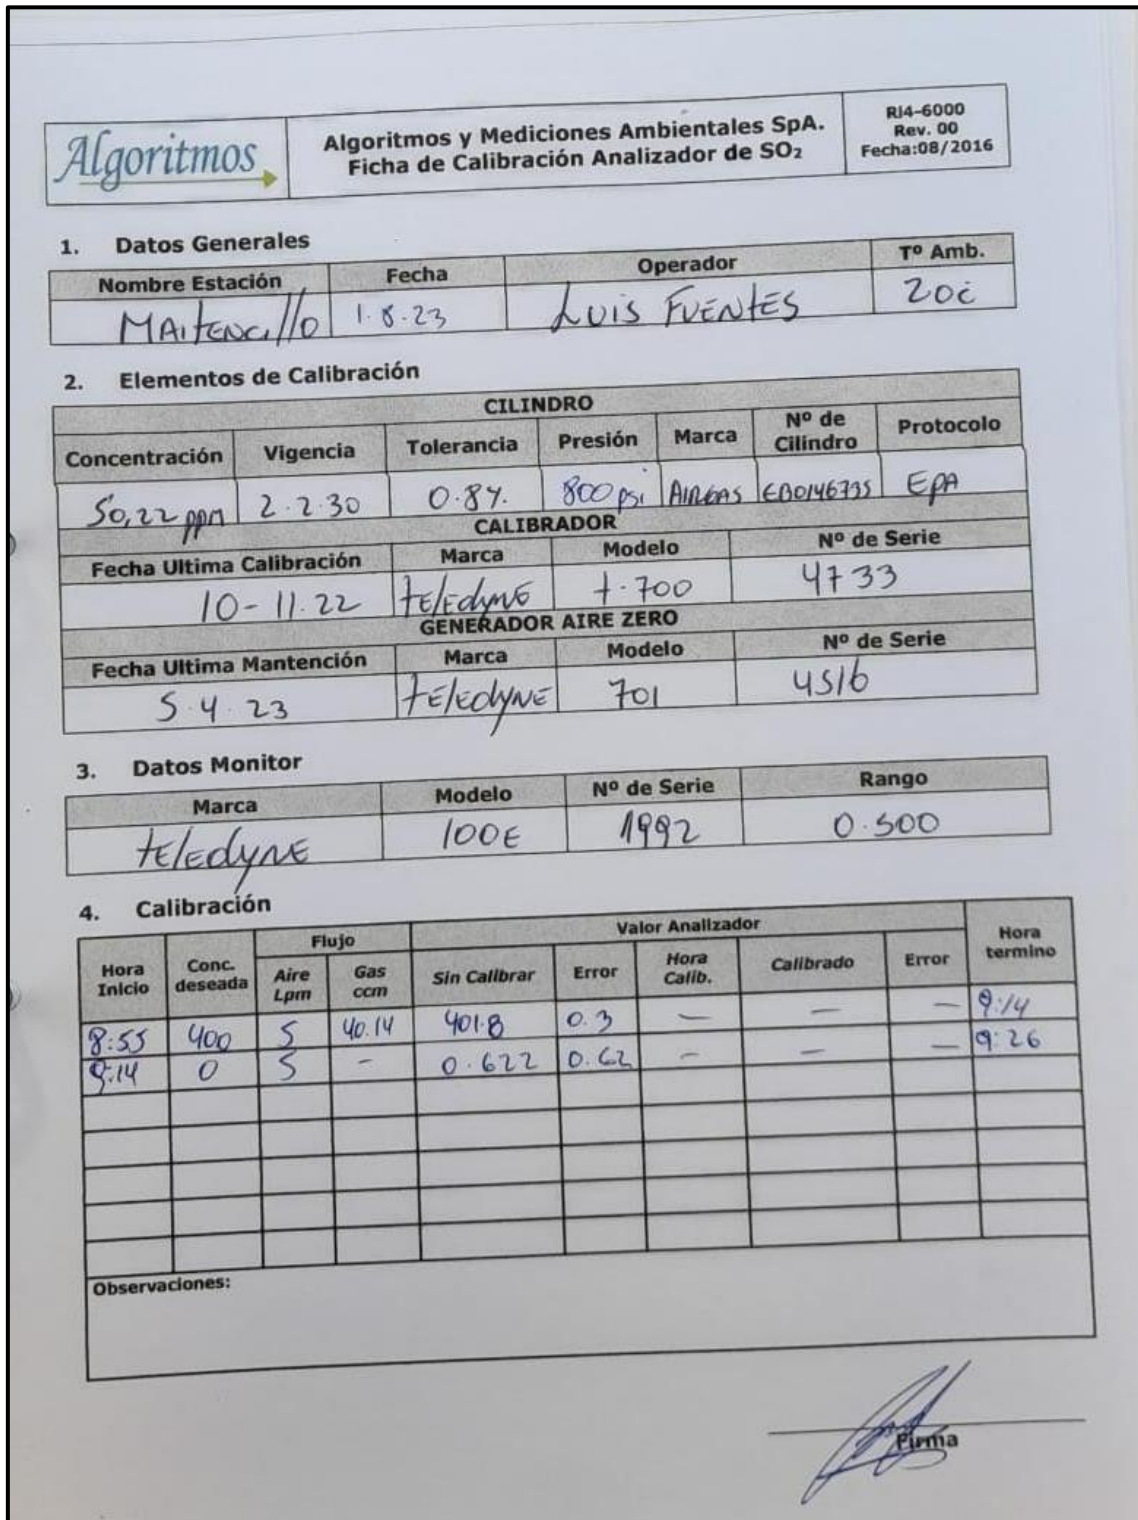 Algoritmos
Algoritmos y Mediciones Ambientales SpA.
Ficha de Calibración Analizador de SO₂
RI4-6000
Rev. 00
Fecha:08/2016
1. Datos Generales
Nombre Estación Fecha Operador Tº Amb.
MAitencillo 1.8.23 Luis FUENtES 20c
2. Elementos de Calibración
CILINDRO
Concentración Vigencia Tolerancia Presión Marca Nº de Cilindro Protocolo
50,22 ppm 2.2.30 0.8%. 800 psi AIRGAS EB0146735 EPA
CALIBRADOR
Fecha Ultima Calibración Marca Modelo Nº de Serie
10-11.22 tElEdyNE t.700 4733
GENERADOR AIRE ZERO
Fecha Ultima Mantención Marca Modelo Nº de Serie
5.4.23 tElEdyNE 701 4516
3. Datos Monitor
Marca Modelo Nº de Serie Rango
tElEdyNE 100E 1992 0.500
4. Calibración
Flujo Valor Analizador
Hora Inicio Conc. deseada Aire Lpm Gas ccm Sin Calibrar Error Hora Calib. Calibrado Error Hora termino
8:55 400 5 40.14 401.8 0.3 — — — 9:14
9:14 0 5 - 0.622 0.62 — — — 9:26
Observaciones:
Firma